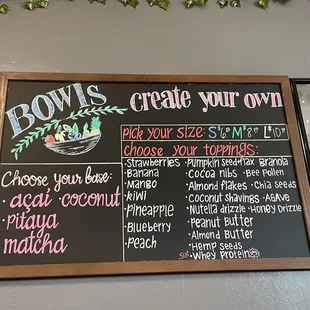 BOWLS
create your own
pick your size: S $6 M $8 L $10
choose your toppings:
Choose your base:
• açaí • coconut
• pitaya
• matcha
• Strawberries
• Banana
• Mango
• Kiwi
• Pineapple
• Blueberry
• Peach
• Pumpkin seed • flax • Granola
• Cocoa nibs • Bee Pollen
• Almond flakes • Chia seeds
• Coconut shavings • AGAVE
• Nutella drizzle • Honey Drizzle
• Peanut Butter
• Almond Butter
• Hemp seeds
• Whey Protein